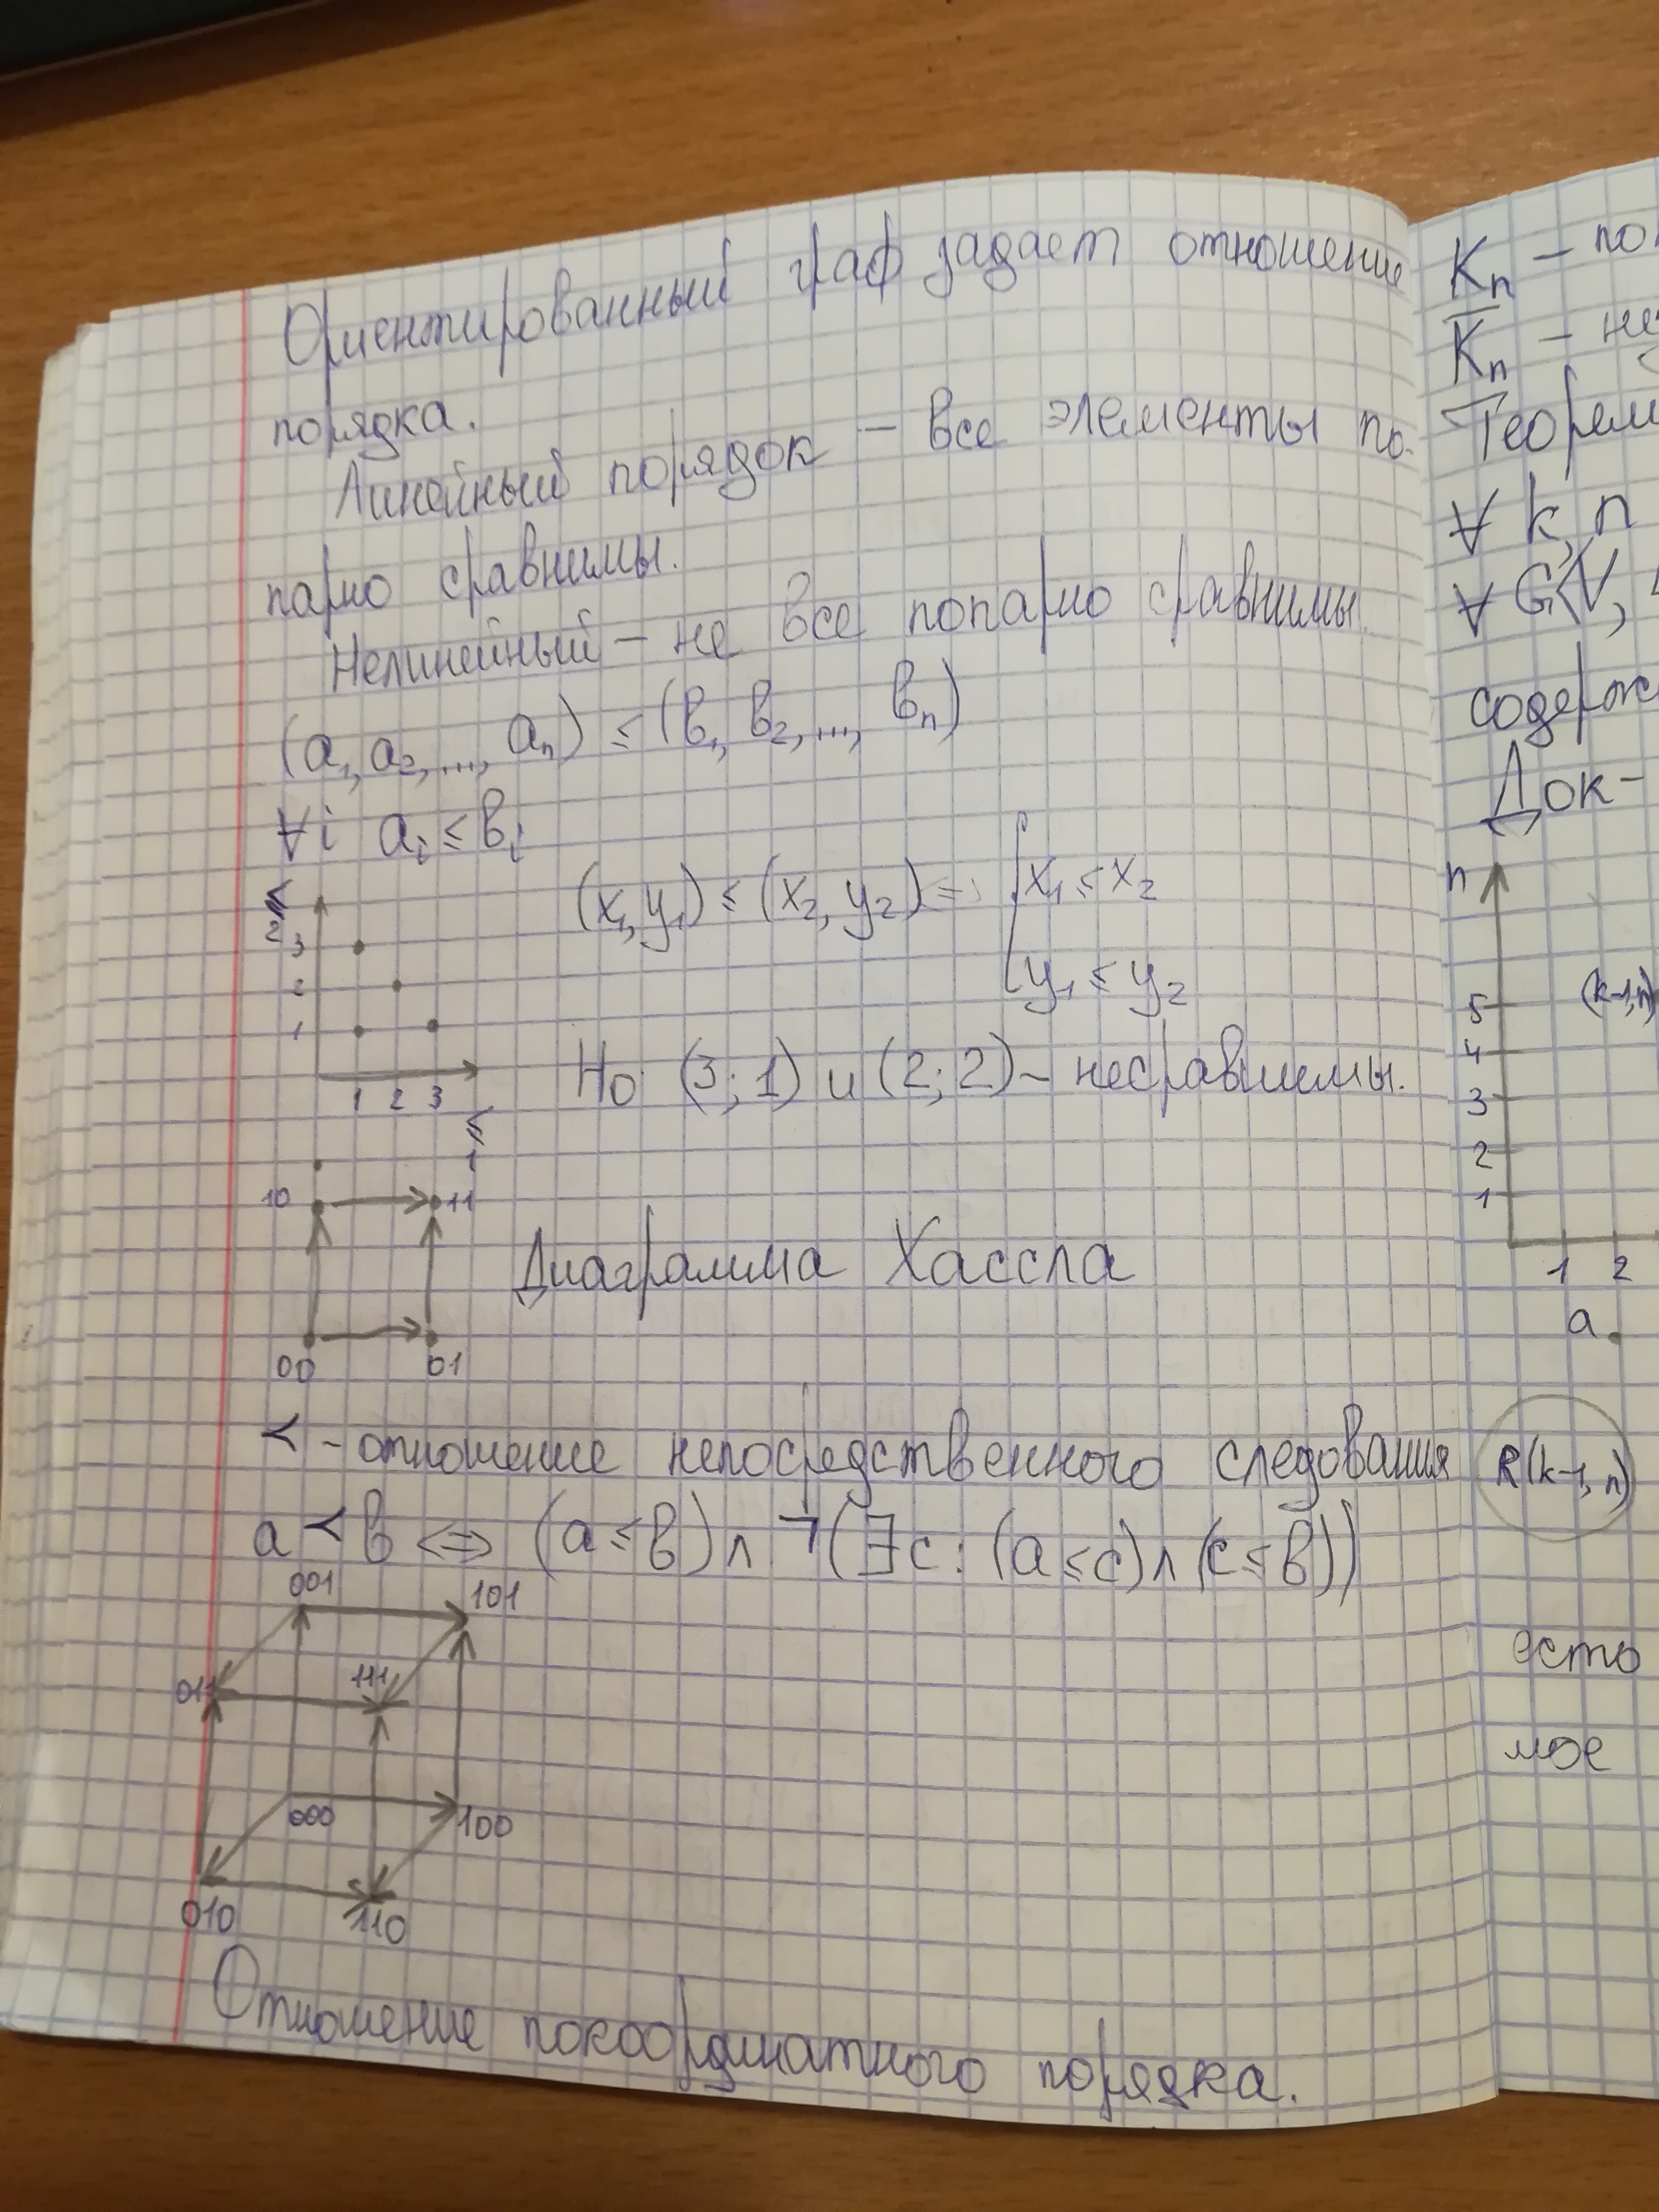 Ориентированный граф задает отношение
порядка.
Линейный порядок – все элементы по-
парно сравнимы.
Нелинейный – не все попарно сравнимы.
(a₁, a₂, ..., aₙ) ≤ (b₁, b₂, ..., bₙ)
∀i aᵢ ≤ bᵢ
(x₁, y₁) ≤ (x₂, y₂) ⇔ { x₁ ≤ x₂
y₁ ≤ y₂
≤
2
3
2
1
1 2 3
≤
1
Но (3; 1) и (2; 2) – несравнимы.
10 11
00 01
Диаграмма Хассла
≺ - отношение непосредственного следования
a ≺ b ⇔ (a ≤ b) ∧ ¬(∃c: (a ≤ c) ∧ (c ≤ b))
001 101
011 111
000 100
010 110
Отношение покоординатного порядка.
Kₙ –
K̅ₙ –
∀ k, n
∀ G⟨V,
Док-
n
5
4
3
2
1
(k-1, n)
1 2
a
R(k-1, n)
есто
мое